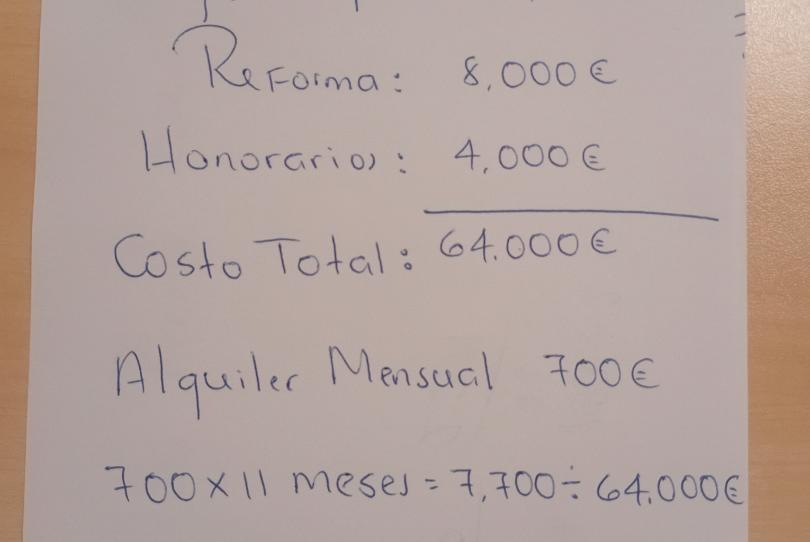 Reforma: 8,000€
Honorarios: 4,000€
Costo Total: 64.000€
Alquiler Mensual 700€
700 x 11 meses = 7,700 ÷ 64.000€